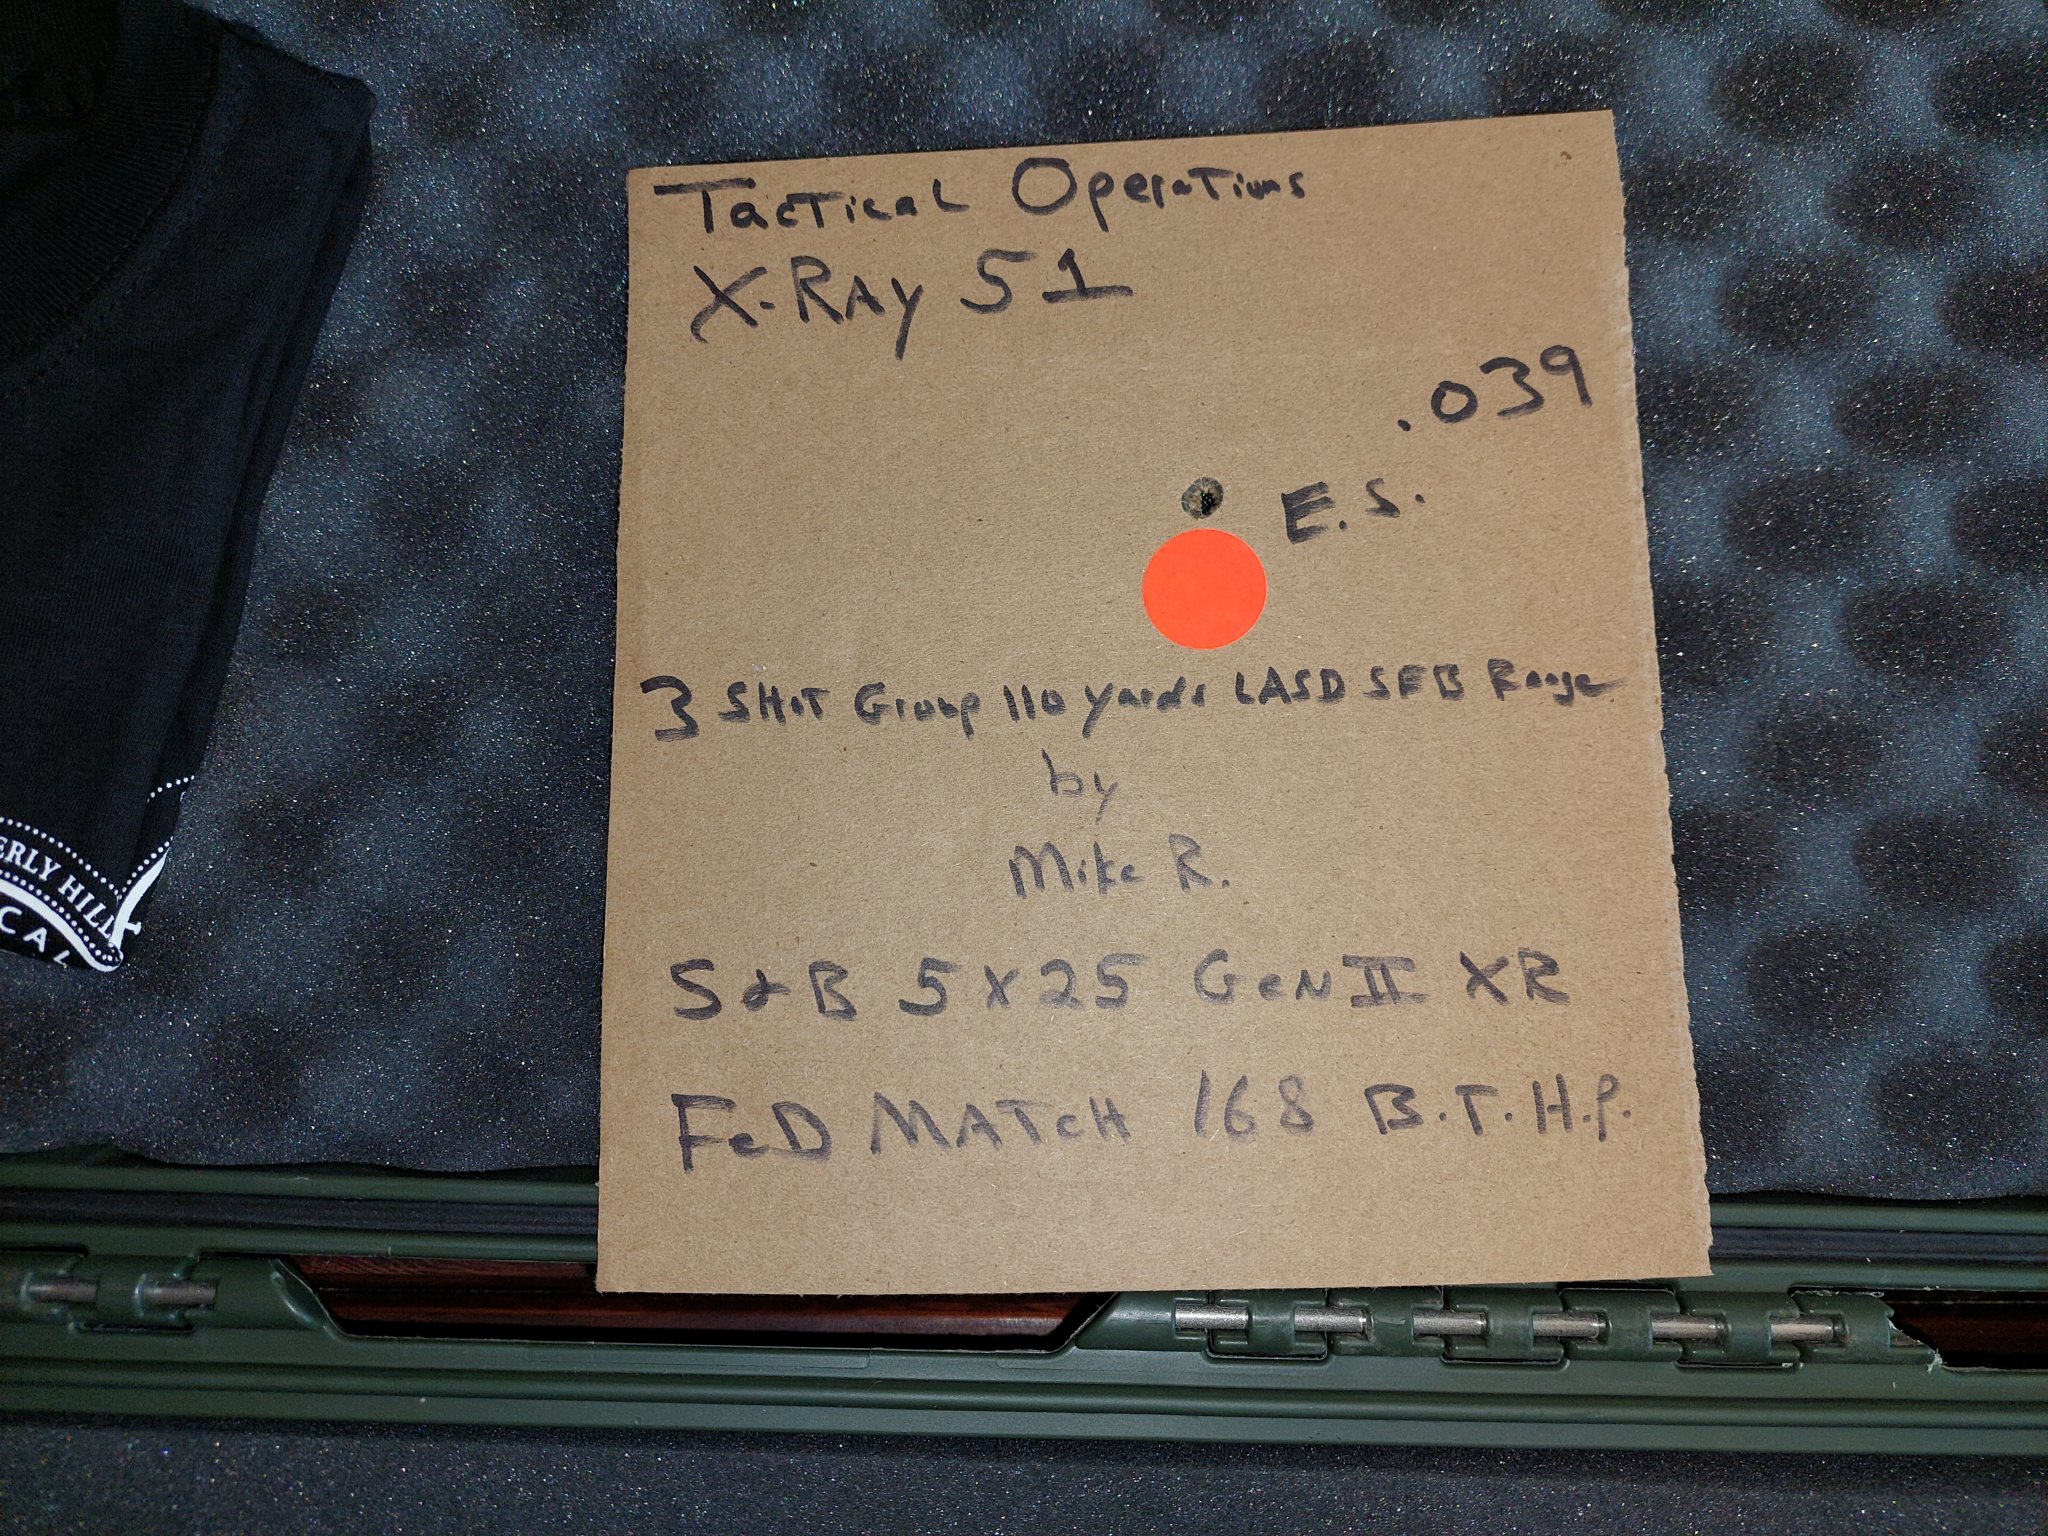 Tactical Operations
X-RAY 51
.039
E.S.
3 SHOT Group 110 yards LASD SEB Range
by
Mike R.
S&B 5X25 GEN II XR
FeD MATCH 168 B.T.H.P.
ERLY HILL
CAL